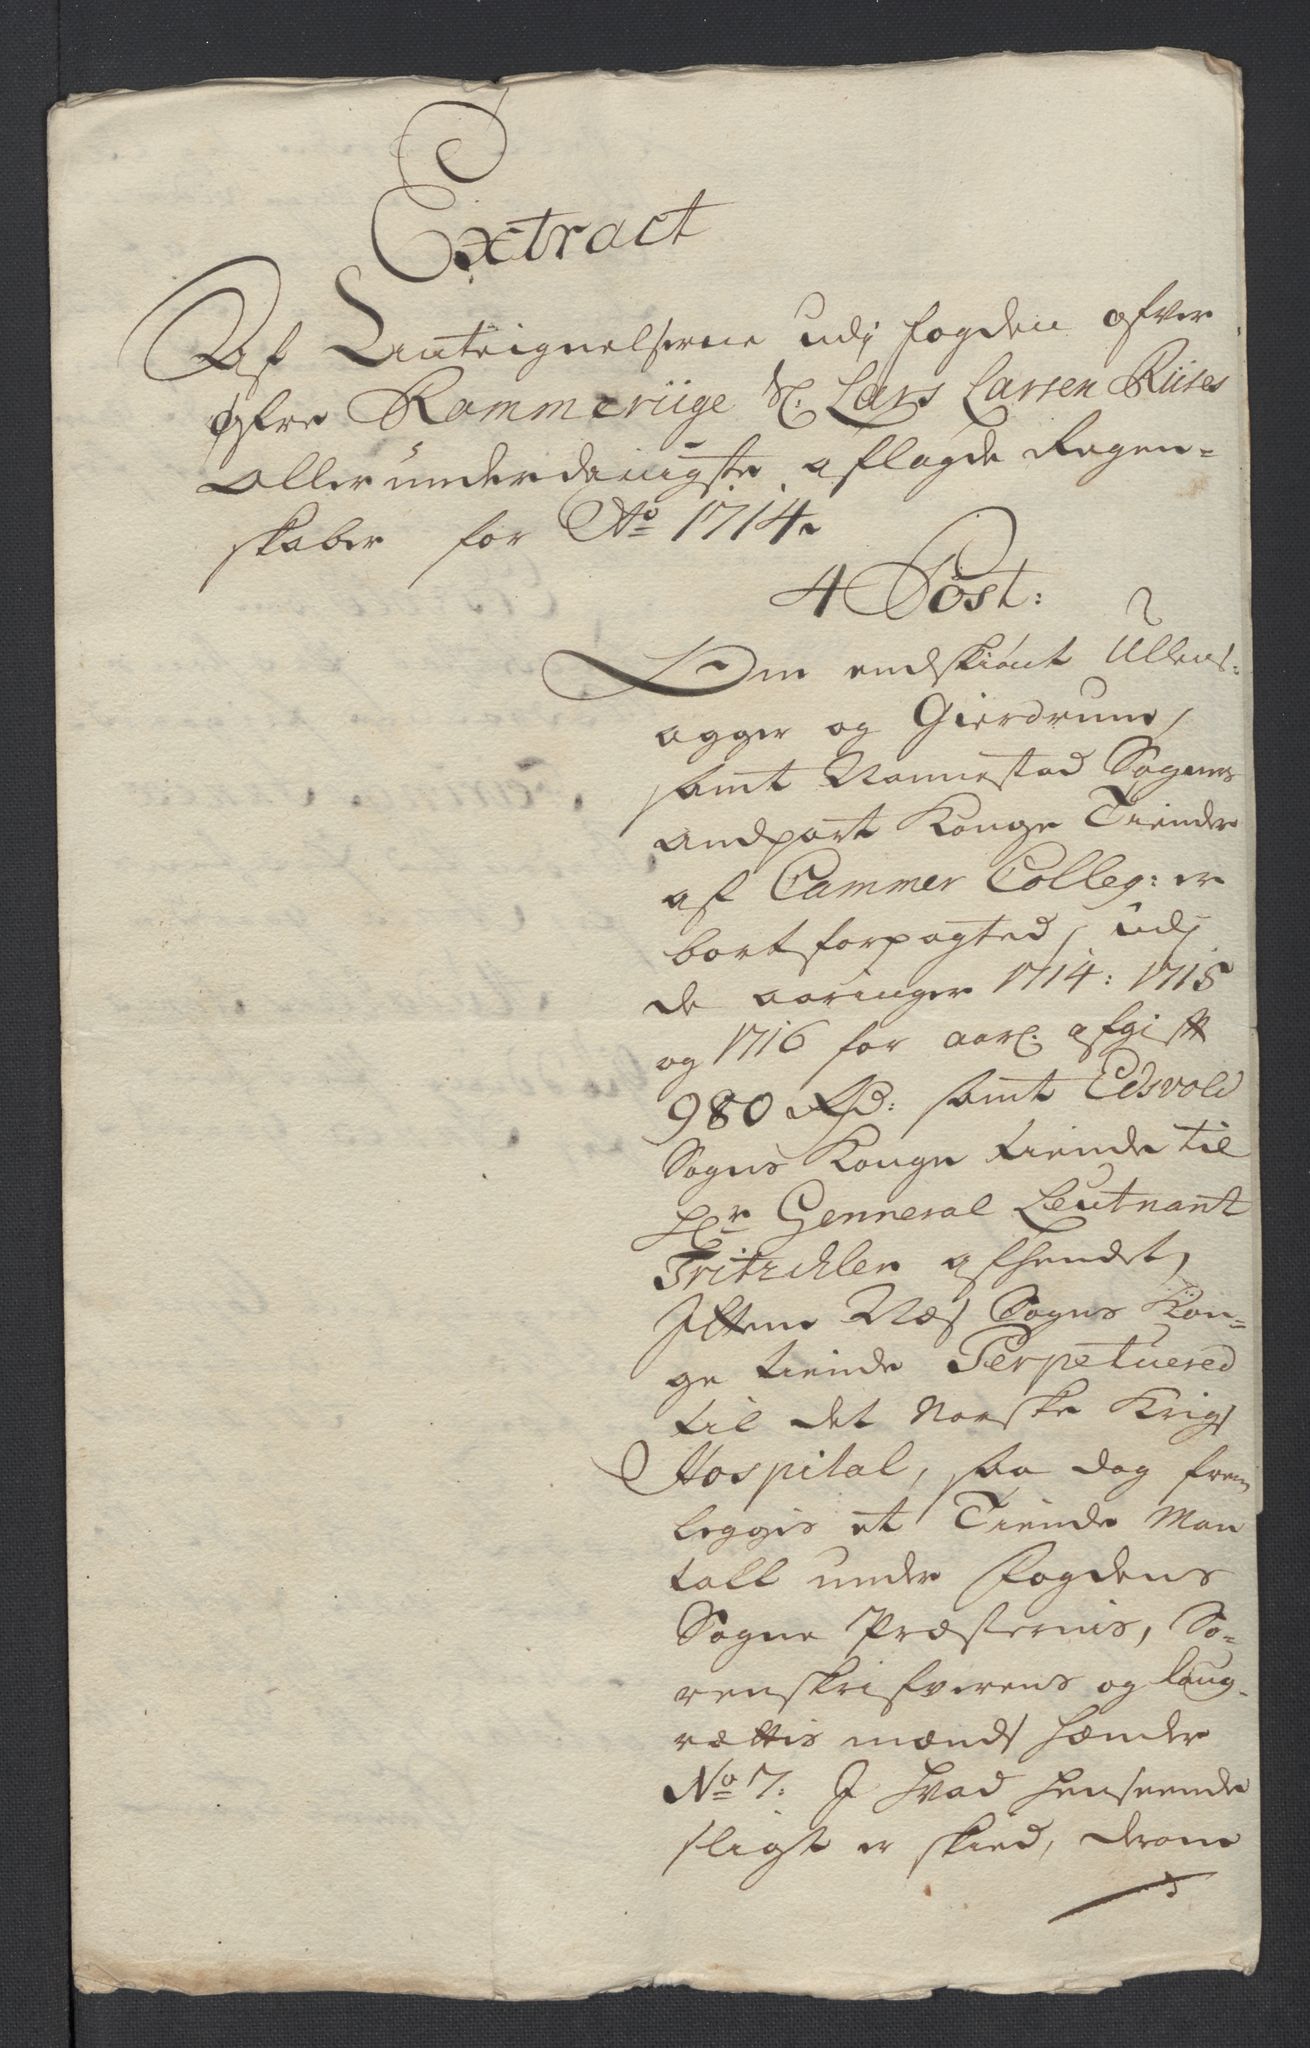 Extract
Af Anteignelserne udj fogden ofver
øfre Rommeriige Sr: Lars Larsen Riises
allerunderdanigste aflagde Regen-
skaber for Ao 1714.
4 Post:
Om endskiønt Ullens-
agger og Gierdrum,
samt Nannestad Sognes
andpart Konge Tiender
af Cammer Colleg: er
bortforpagted, udj
de aaringer 1714: 1715
og 1716 for aarl: afgift
980 Rd: samt Edsvold
Sogns Konge tiende til
Hr General Leutnant
Tritzchler afhendet,
Ittem Næs Sogns Kon-
ge tiende Perpetuered
til det Norske Krigs
Hospital, saa dog frem
leggis et Tiende Man
tall under fogdens
Sogne Præsternis, So-
renskrifverens og laug-
rettis mænds hænder
No 7. I hvad henseende
sligt er skied, derom